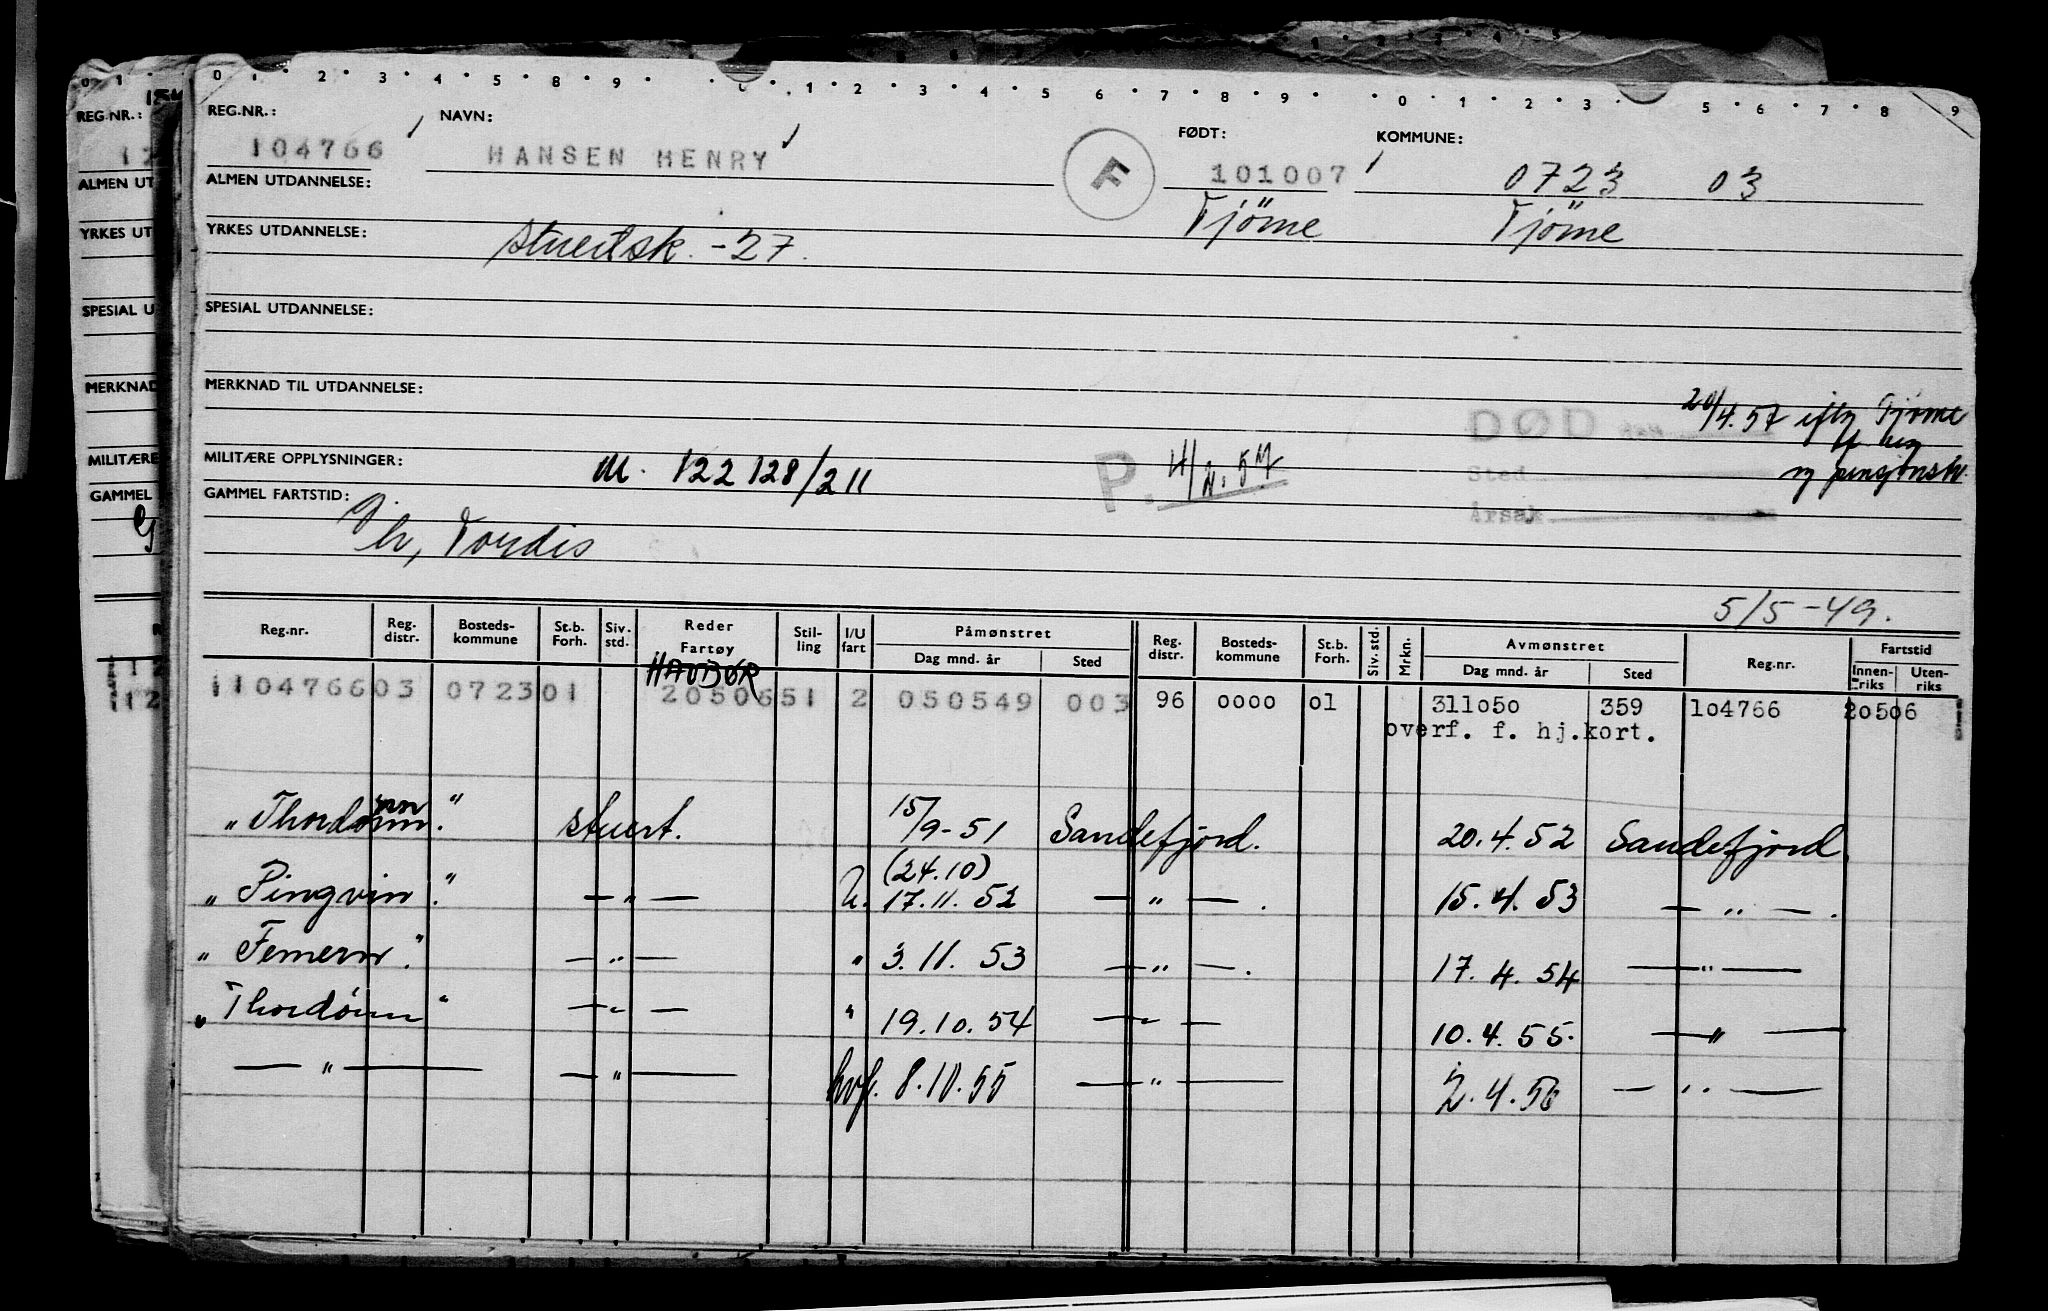 0 1 2 3 4 5 8 9 1 2 3 4 5 6 7 8 9 0 1 2 3 5 6 7 8 9
REG.NR.: NAVN: FØDT: KOMMUNE:
104766 HANSEN HENRY F 101007 0723 03
ALMEN UTDANNELSE: Tjöme Tjöme
YRKES UTDANNELSE: stuertsk. -27.
SPESIAL UTDANNELSE:
MERKNAD TIL UTDANNELSE:
DØD 20/4.57 Tjöme
MILITÆRE OPPLYSNINGER: M. 122128/211 P. 4/2.57
Sted
GAMMEL FARTSTID:
Årsak
Tordis
5/5-49.
Reg.nr. Reg. distr. Bosteds- kommune St.b. Forh. Siv. std. Reder Fartøy Stil- ling I/U fart Påmønstret Dag mnd. år Sted Reg. distr. Bosteds- kommune St.b. Forh. Siv. std. Mrkn. Avmønstret Dag mnd. år Sted Reg.nr. Fartstid Innen- riks Uten- riks
HAUBØR
110476603 072301 2050651 2 050549 003 96 0000 01 311050 359 104766 20506
overf. f. hj.kort.
"Thordønn." stuert. 15/9-51 Sandefjord. 20.4.52 Sandefjord.
(24.10)
"Pingvin." — " — U. 17.11.52 — " — . 15.4.53 — " — .
"Femern." — " — " 3.11.53 — " — . 17.4.54 — " —
"Thordønn" — " — " 19.10.54 — " — 10.4.55. — " —
— " — — " — hvf. 8.10.55 — " — 2.4.56 — " —
REG.NR.:
ALMEN UT
YRKES UT
SPESIAL U
MERKNAD
MILITÆRE
GAMMEL